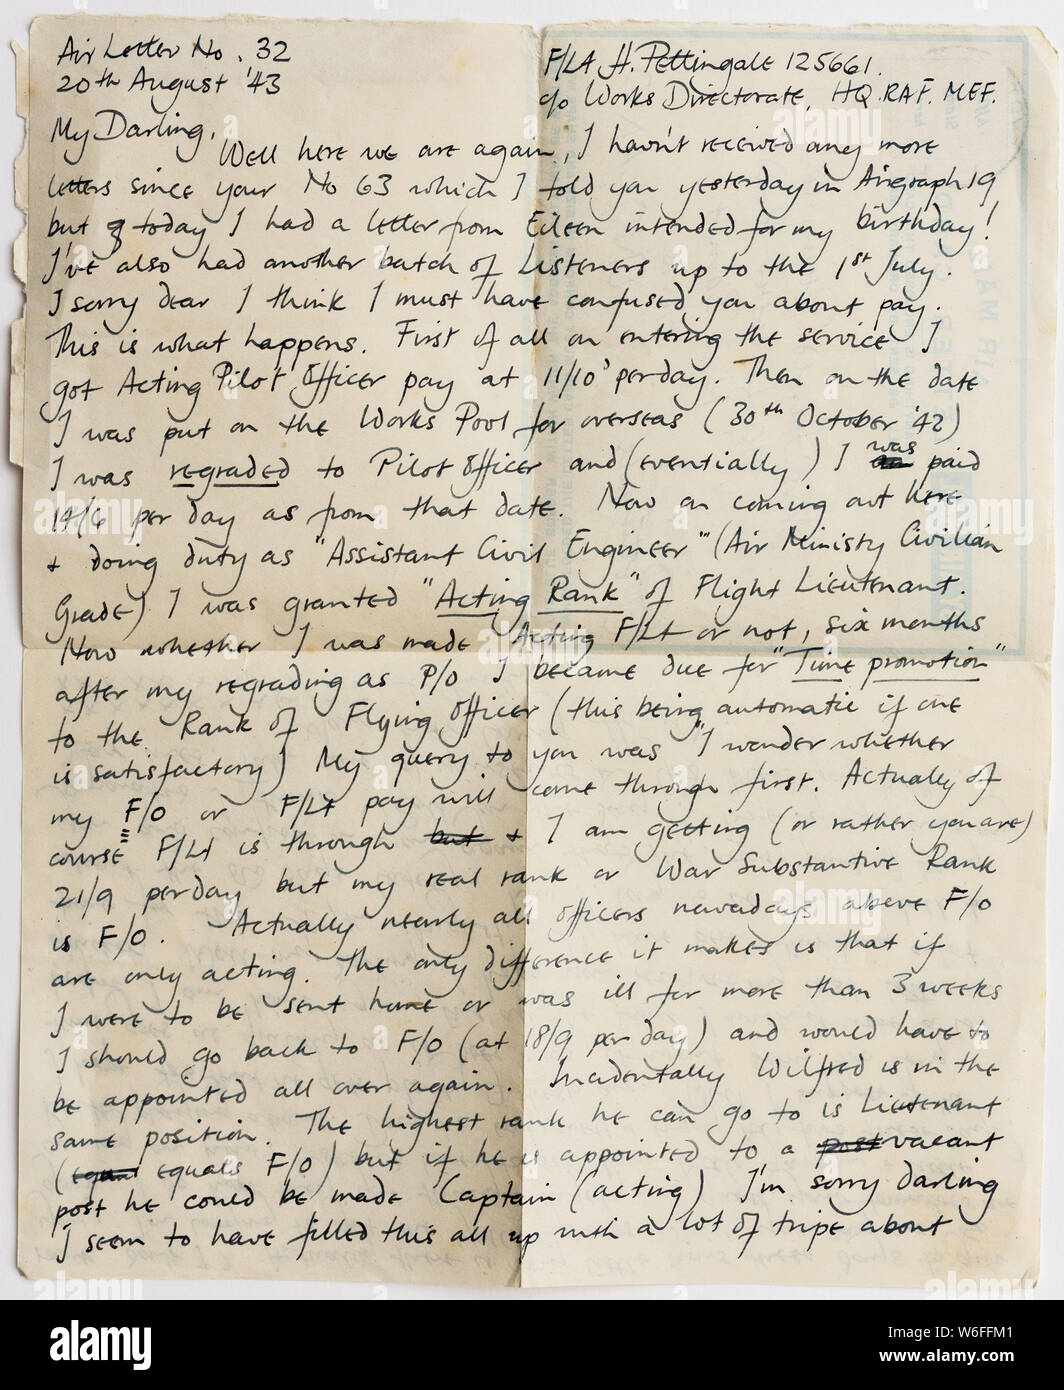 Air Letter No. 32
20th August '43
F/Lt H. Pettingale 125661.
c/o Works Directorate, HQ. R.A.F. M.E.F.
My Darling,
Well here we are again, I havn't received any more
letters since your No 63 which I told you yesterday in Airgraph 19
but today I had a letter from Eileen intended for my birthday!
I've also had another batch of Listeners up to the 1st July.
I sorry dear I think I must have confused you about pay.
This is what happens. First of all on entering the service I
got Acting Pilot Officer pay at 11/10' per day. Then on the date
I was put on the Works Pool for overseas (30th October '42)
I was regraded to Pilot Officer and (eventially) I was paid
14/6 per day as from that date. Now on coming out here
+ doing duty as "Assistant Civil Engineer" (Air Ministry Civilian
Grade) I was granted "Acting Rank" of Flight Lieutenant.
Now whether I was made Acting F/Lt or not, six months
after my regrading as P/O I became due for "Time promotion"
to the Rank of Flying Officer (this being automatic if one
is satisfactory) My query to you was "I wonder whether
my F/O or F/Lt pay will come through first. Actually of
course F/Lt is through but + I am getting (or rather you are)
21/9 per day but my real rank or War Substantive Rank
is F/O. Actually nearly all officers nowadays above F/O
are only acting. The only difference it makes is that if
I were to be sent home or was ill for more than 3 weeks
I should go back to F/O (at 18/9 per day) and would have to
be appointed all over again. Incidentally Wilfred is in the
same position. The highest rank he can go to is Lieutenant
(equals F/O) but if he is appointed to a post vacant
post he could be made Captain (acting) I'm sorry darling
I seem to have filled this all up with a lot of tripe about
alamy
Image ID: W6FFM1
www.alamy.com